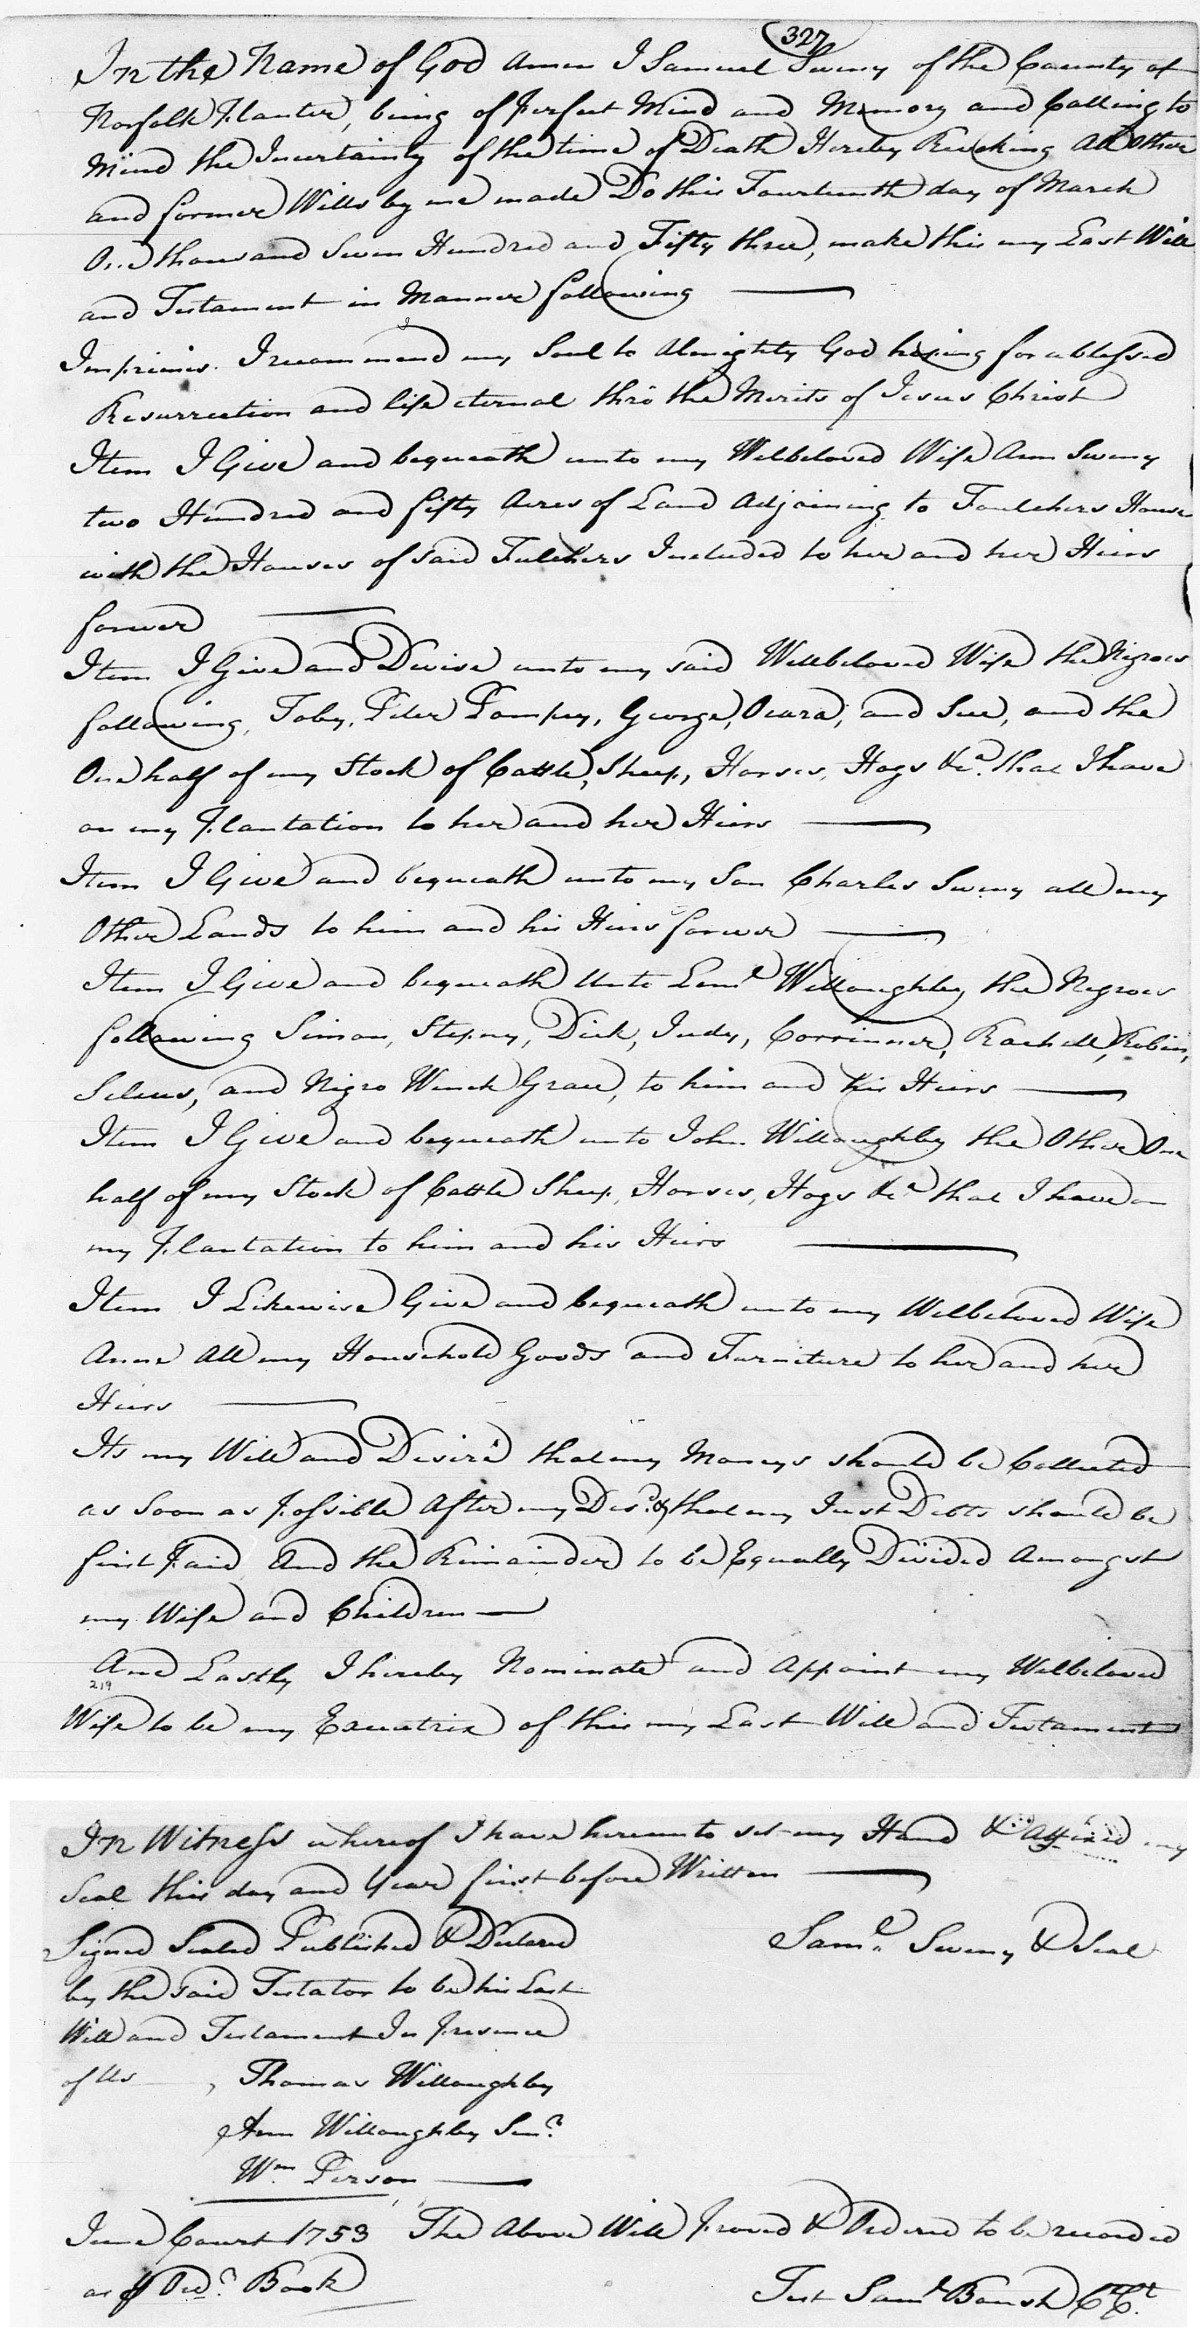 327
In the Name of God Amen I Samuel Sweny of the County of
Norfolk Planter, being of Perfect Mind and Memory and Calling to
Mind the Incertainty of the time of Death Hereby Revoking All Other
and former Wills by me made Do this Fourteenth day of March
One thousand Seven Hundred and Fifty three, make this my Last Will
and Testament in Manner following
Imprimis. I recommend my Soul to Almighty God hoping for a blessed
Resurrection and life eternal thrõ the Merits of Jesus Christ
Item I Give and bequeath unto my Welbeloved Wife Ann Sweny
two Hundred and fifty Acres of Land Adjoining to Foulchers House
with the Houses of said Fulchers Included to her and her Heirs
forever
Item I Give and Devise unto my said Wellbeloved Wife the Negroes
following, Toby, Peter Pompey, George, Ocara, and Sue, and the
One half of my Stock of Cattle, Sheep, Horses, Hogs &ca. that I have
on my Plantation to her and her Heirs
Item I Give and bequeath unto my Son Charles Sweny all my
Other Lands to him and his Heirs forever
Item I Give and bequeath Unto Leml Willoughby the Negroes
following Simon, Stepny, Dick, Judy, Corrinner, Rachell, Robin,
and Negro Wench Grace, to him and his Heirs
Item I Give and bequeath unto John Willoughby the Other One
half of my Stock of Cattle Sheep, Horses, Hogs &ca that I have on
my Plantation to him and his Heirs
Item I Likewise Give and bequeath unto my Welbeloved Wife
Anne All my Household Goods and Furniture to her and her
Heirs
Its my Will and Desire that my Moneys should be Collected
as Soon as Possible After my Desd. & that my Just Debts should be
first Paid And the Remainder to be Equally Divided Amongst
my Wife and Children
And Lastly I hereby Nominate and Appoint my Welbeloved
219
Wife to be my Executrix of this my Last Will and Testament
In Witness whereof I have hereunto set my Hand & Affixed my
Seal this day and Year first before Written
Signed Sealed Published & Declared
Saml. Sweny & Seal
by the said Testator to be his Last
Will and Testament In Presence
of Us
Thomas Willoughby
Ann Willoughby Senr.
Wm. Person
June Court 1753 The Above Will Proved & Ordered to be recorded
as Ordr. Book
Test Saml Boush Ct Ct.